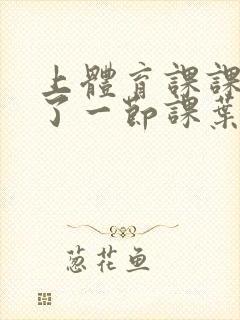 上體育課課
了一節課葉
葱花鱼